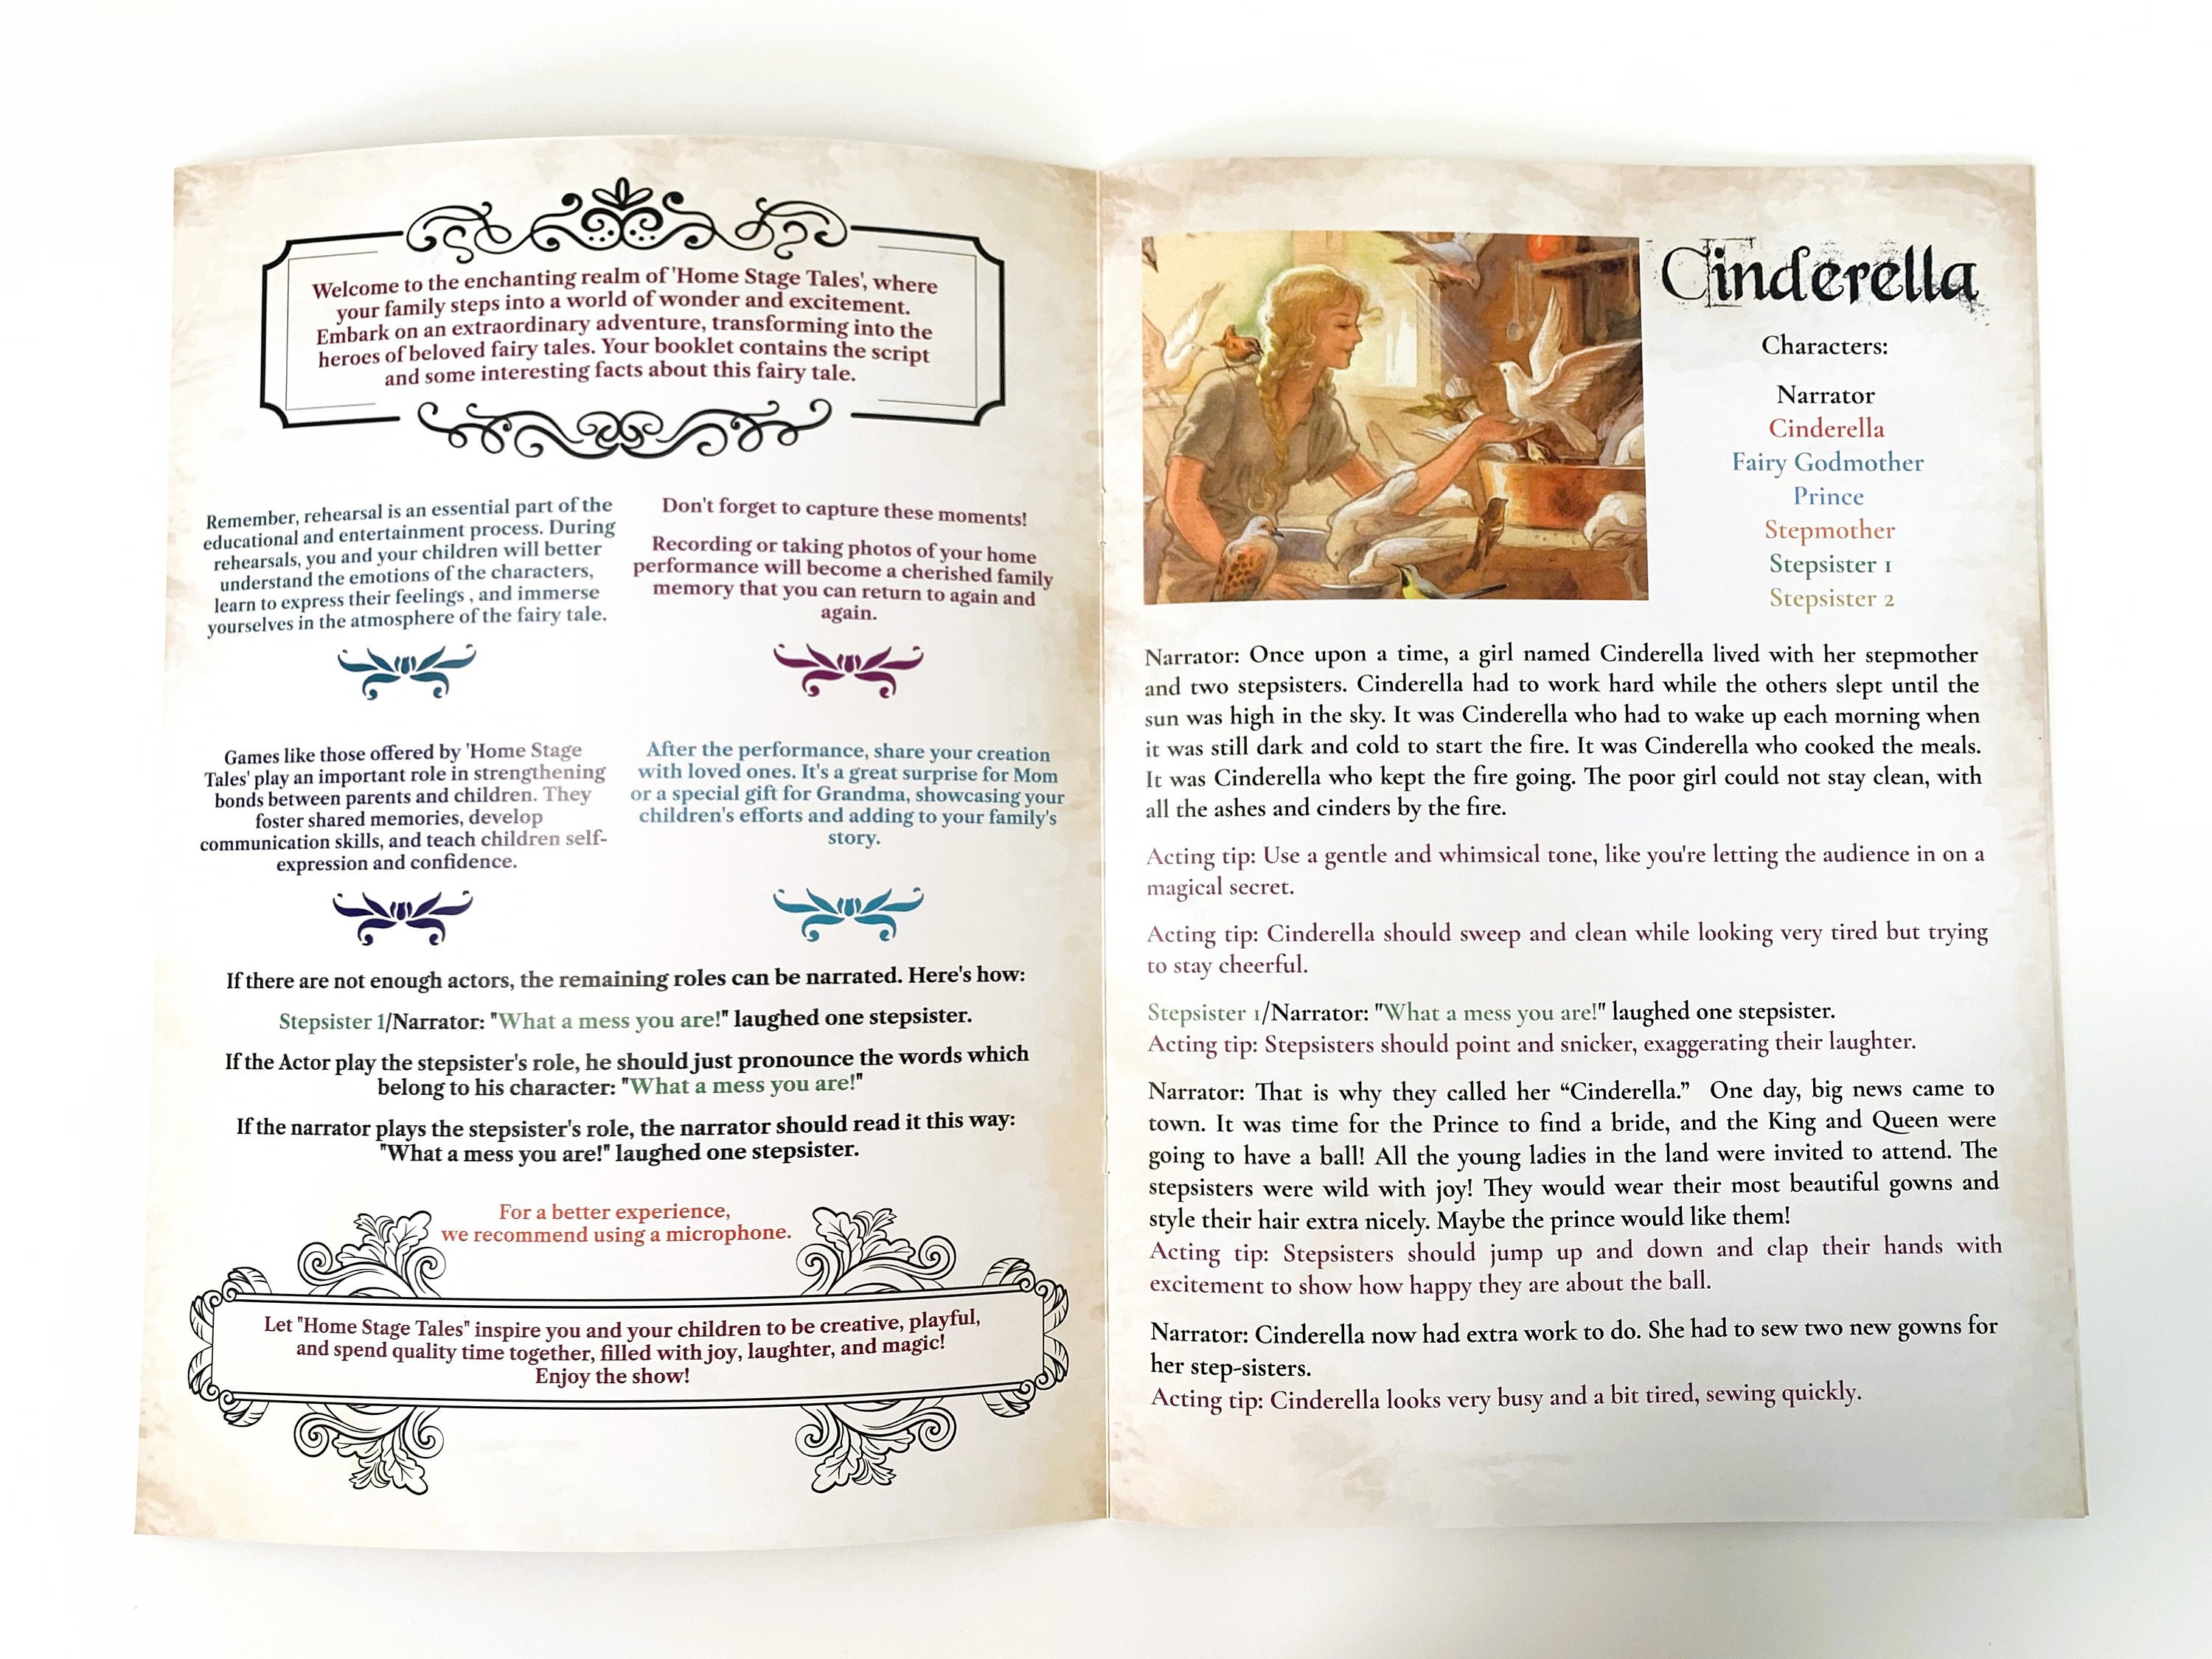 Welcome to the enchanting realm of 'Home Stage Tales', where
your family steps into a world of wonder and excitement.
Embark on an extraordinary adventure, transforming into the
heroes of beloved fairy tales. Your booklet contains the script
and some interesting facts about this fairy tale.
Remember, rehearsal is an essential part of the
educational and entertainment process. During
rehearsals, you and your children will better
understand the emotions of the characters,
learn to express their feelings , and immerse
yourselves in the atmosphere of the fairy tale.
Don't forget to capture these moments!
Recording or taking photos of your home
performance will become a cherished family
memory that you can return to again and
again.
Games like those offered by 'Home Stage
Tales' play an important role in strengthening
bonds between parents and children. They
foster shared memories, develop
communication skills, and teach children self-
expression and confidence.
After the performance, share your creation
with loved ones. It's a great surprise for Mom
or a special gift for Grandma, showcasing your
children's efforts and adding to your family's
story.
If there are not enough actors, the remaining roles can be narrated. Here's how:
Stepsister 1/Narrator: "What a mess you are!" laughed one stepsister.
If the Actor play the stepsister's role, he should just pronounce the words which
belong to his character: "What a mess you are!"
If the narrator plays the stepsister's role, the narrator should read it this way:
"What a mess you are!" laughed one stepsister.
For a better experience,
we recommend using a microphone.
Let "Home Stage Tales" inspire you and your children to be creative, playful,
and spend quality time together, filled with joy, laughter, and magic!
Enjoy the show!
Cinderella
Characters:
Narrator
Cinderella
Fairy Godmother
Prince
Stepmother
Stepsister 1
Stepsister 2
Narrator: Once upon a time, a girl named Cinderella lived with her stepmother
and two stepsisters. Cinderella had to work hard while the others slept until the
sun was high in the sky. It was Cinderella who had to wake up each morning when
it was still dark and cold to start the fire. It was Cinderella who cooked the meals.
It was Cinderella who kept the fire going. The poor girl could not stay clean, with
all the ashes and cinders by the fire.
Acting tip: Use a gentle and whimsical tone, like you're letting the audience in on a
magical secret.
Acting tip: Cinderella should sweep and clean while looking very tired but trying
to stay cheerful.
Stepsister 1/Narrator: "What a mess you are!" laughed one stepsister.
Acting tip: Stepsisters should point and snicker, exaggerating their laughter.
Narrator: That is why they called her “Cinderella.” One day, big news came to
town. It was time for the Prince to find a bride, and the King and Queen were
going to have a ball! All the young ladies in the land were invited to attend. The
stepsisters were wild with joy! They would wear their most beautiful gowns and
style their hair extra nicely. Maybe the prince would like them!
Acting tip: Stepsisters should jump up and down and clap their hands with
excitement to show how happy they are about the ball.
Narrator: Cinderella now had extra work to do. She had to sew two new gowns for
her step-sisters.
Acting tip: Cinderella looks very busy and a bit tired, sewing quickly.